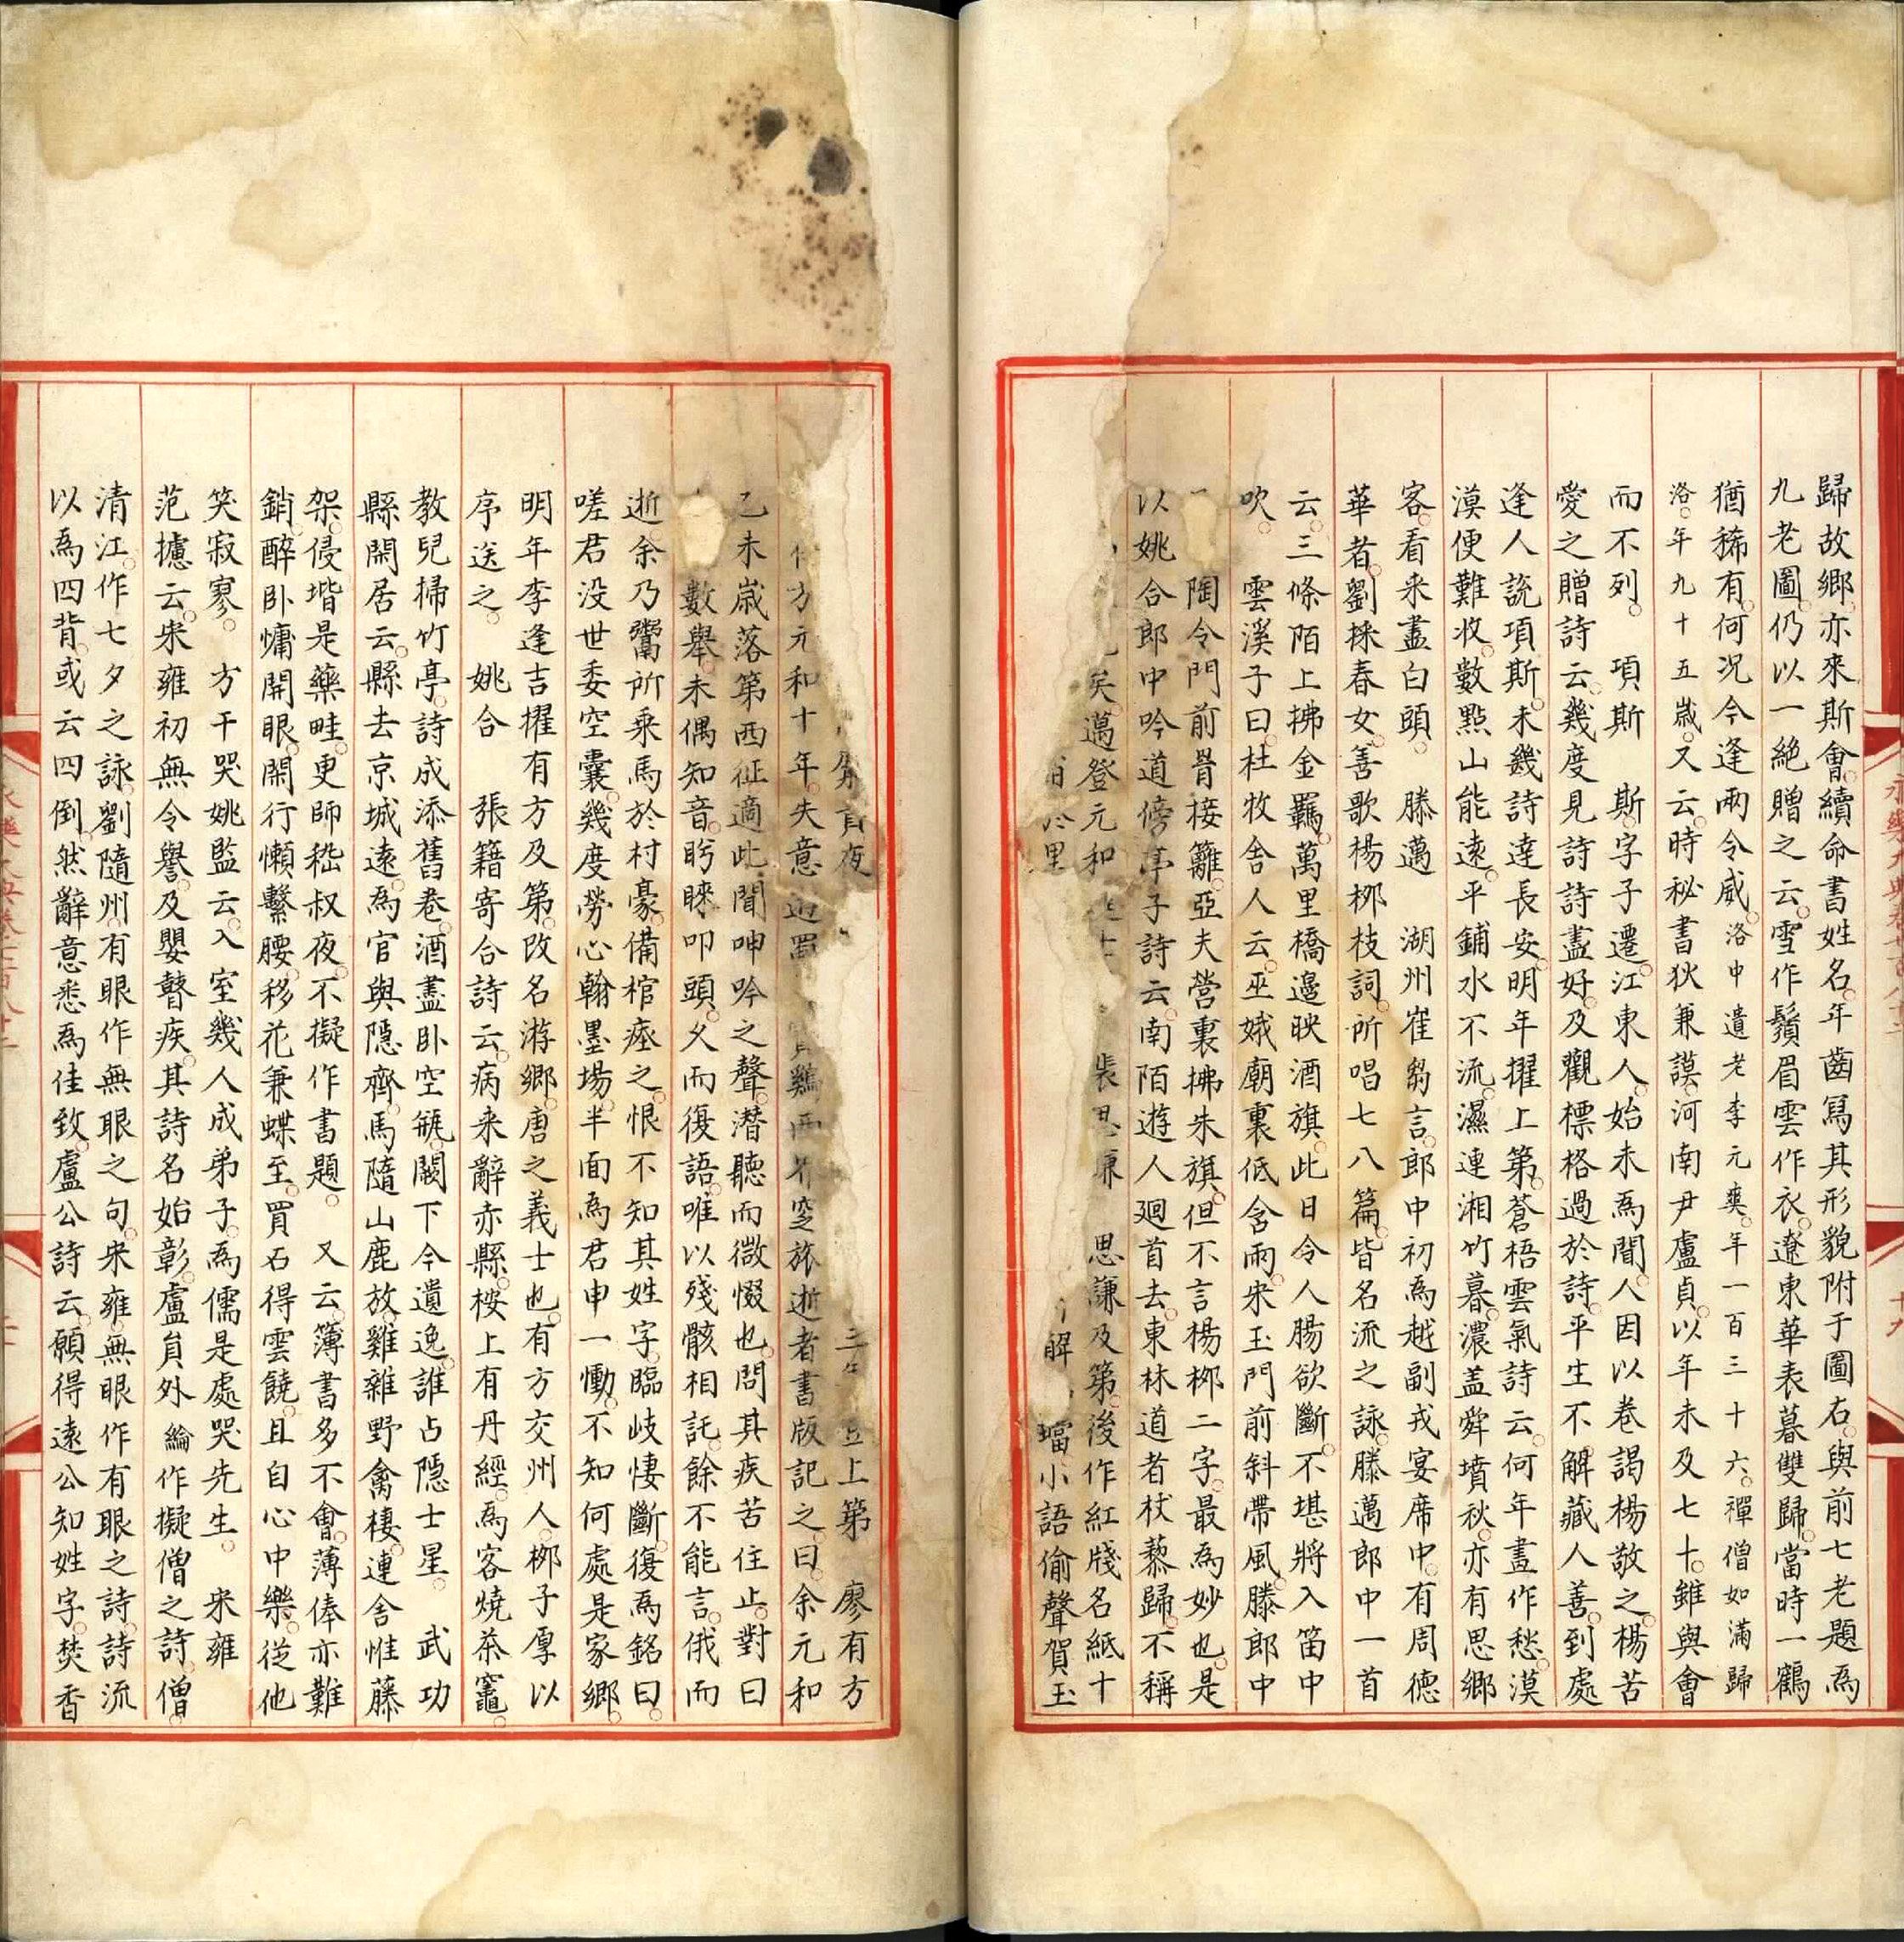 歸故鄉亦來斯會續命書姓名年齒寫其形貌附于圖右與前七老題為
九老圖仍以一絕贈之云雪作鬚眉雲作衣遼東華表暮雙歸當時一鶴
猶稀有何況今逢兩令威洛中遺老李元爽年一百三十六禪僧如滿歸
洛年九十五歲又云時秘書狄兼謨河南尹盧貞以年未及七十雖與會
而不列 項斯 斯字子遷江東人始未為聞人因以卷謁楊敬之楊苦
愛之贈詩云幾度見詩詩盡好及觀標格過於詩平生不解藏人善到處
逢人說項斯未幾詩達長安明年擢上第蒼梧雲氣詩云何年畫作愁漠
漠便難收數點山能遠平鋪水不流濕連湘竹暮濃蓋舜墳秋亦有思鄉
客看来盡白頭 滕邁 湖州崔芻言郎中初為越副戎宴席中有周德
華者劉採春女善歌楊栁枝詞所唱七八篇皆名流之詠滕邁郎中一首
云三條陌上拂金羈萬里橋邊映酒旗此日令人腸欲斷不堪將入笛中
吹 雲溪子曰杜牧舍人云巫娥廟裏低含雨宋玉門前斜帶風滕郎中
陶令門前罥接籬亞夫營裏拂朱旗但不言楊栁二字最為妙也是
以姚合郎中吟道傍亭子詩云南陌遊人廻首去東林道者杖藜歸不稱
矣邁登元和 張思謙 思謙及第後作紅牋名紙十
里 解 璫小語偷聲賀玉
夜 上第 廖有方
方元和十年失意 雞西 旅逝者書版記之曰余元和
乙未歲落第西征適此聞呻吟之聲潛聽而微惙也問其疾苦住止對曰
數舉未偶知音眄睞叩頭久而復語唯以殘骸相託餘不能言俄而
逝余乃鬻所乘馬於村豪備棺瘞之恨不知其姓字臨岐悽斷復為銘曰
嗟君没世委空囊幾度勞心翰墨場半面為君申一慟不知何處是家鄉
明年李逢吉擢有方及第改名游鄉唐之義士也有方交州人栁子厚以
序送之 姚合 張籍寄合詩云病来辭赤縣桉上有丹經為客燒茶竈
教兒掃竹亭詩成添舊卷酒盡卧空瓶闕下今遺逸誰占隱士星 武功
縣閑居云縣去京城遠為官與隱齊馬隨山鹿放雞雜野禽棲連舍惟藤
架侵堦是藥畦更師嵇叔夜不擬作書題 又云簿書多不會薄俸亦難
銷醉卧慵開眼閑行懶繫腰移花兼蝶至買石得雲饒且自心中樂從他
笑寂寥 方干哭姚監云入室幾人成弟子為儒是處哭先生 宋雍
范攄云宋雍初無令譽及嬰瞽疾其詩名始彰盧員外綸作擬僧之詩僧
清江作七夕之詠劉隨州有眼作無眼之句宋雍無眼作有眼之詩詩流
以為四背或云四倒然辭意悉為佳致盧公詩云願得遠公知姓字焚香